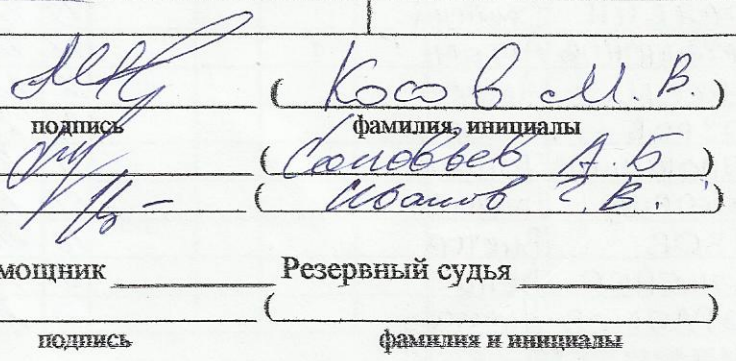 (Косов М. В.)
подпись фамилия, инициалы
(Соловьев А. Б)
(Иванов Г. В.)
мощник ____________ Резервный судья ____________
(                    )
подпись фамилия и инициалы